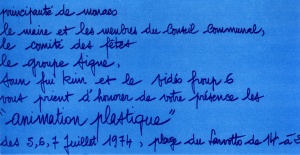 principauté de monaco
le maire et les membres du Conseil Communal,
le comité des fêtes
le groupe Signe,
et le vidéo group 6
vous prient d'honorer de votre présence les
"animation plastique"
des 5, 6, 7 Juillet 1974, plage du Larvotto de 14 à